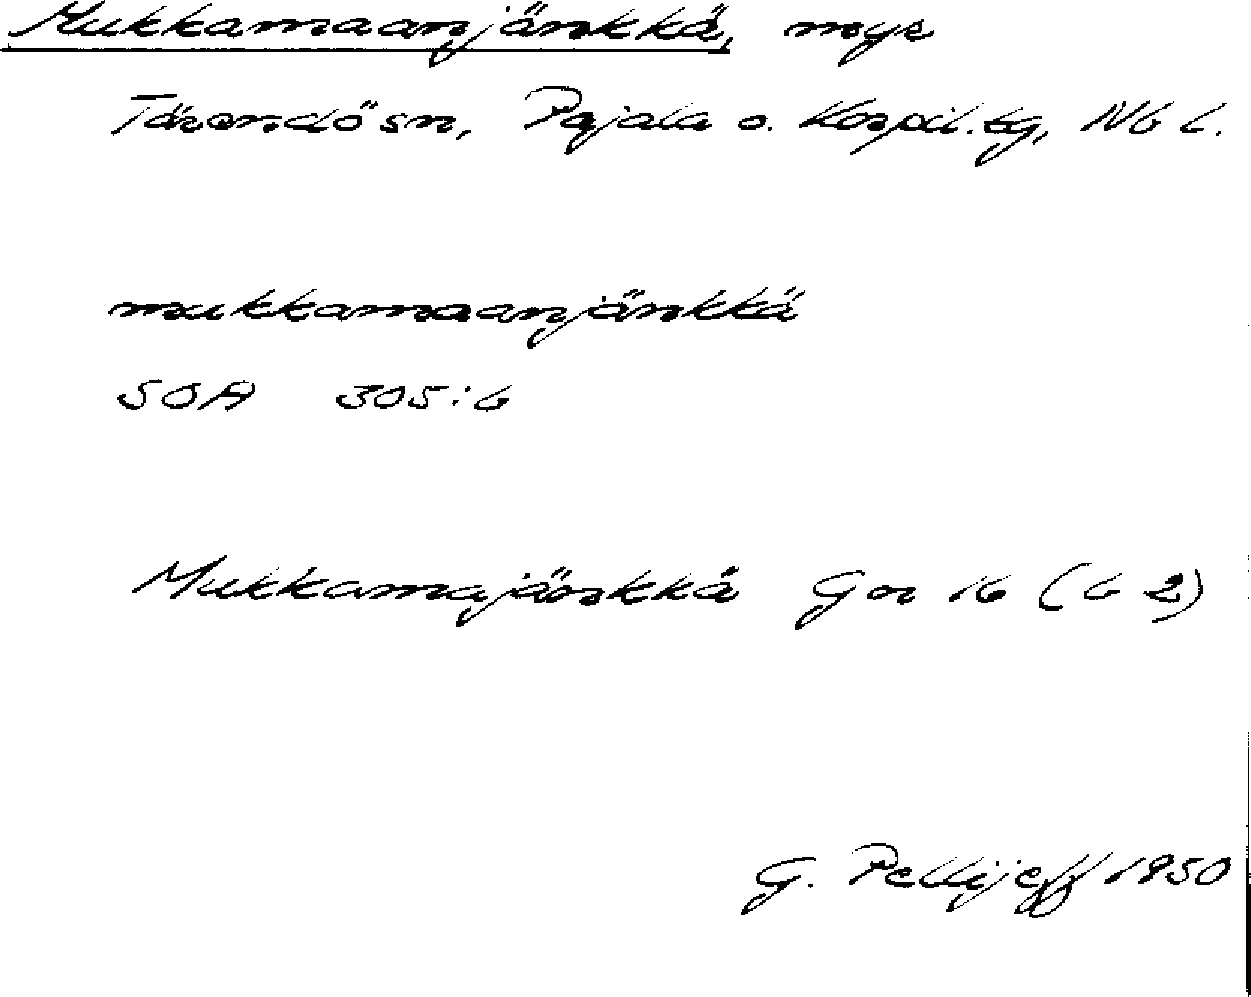 Mukkamaanjänkkä, myr
Tärendö sn, Pajala o. Korpil. tg, Nb l.
mukkamaanjänkkä
SOA 305:6
Mukkamajänkkä Gn 16 (b 2)
G. Pellijeff 1950